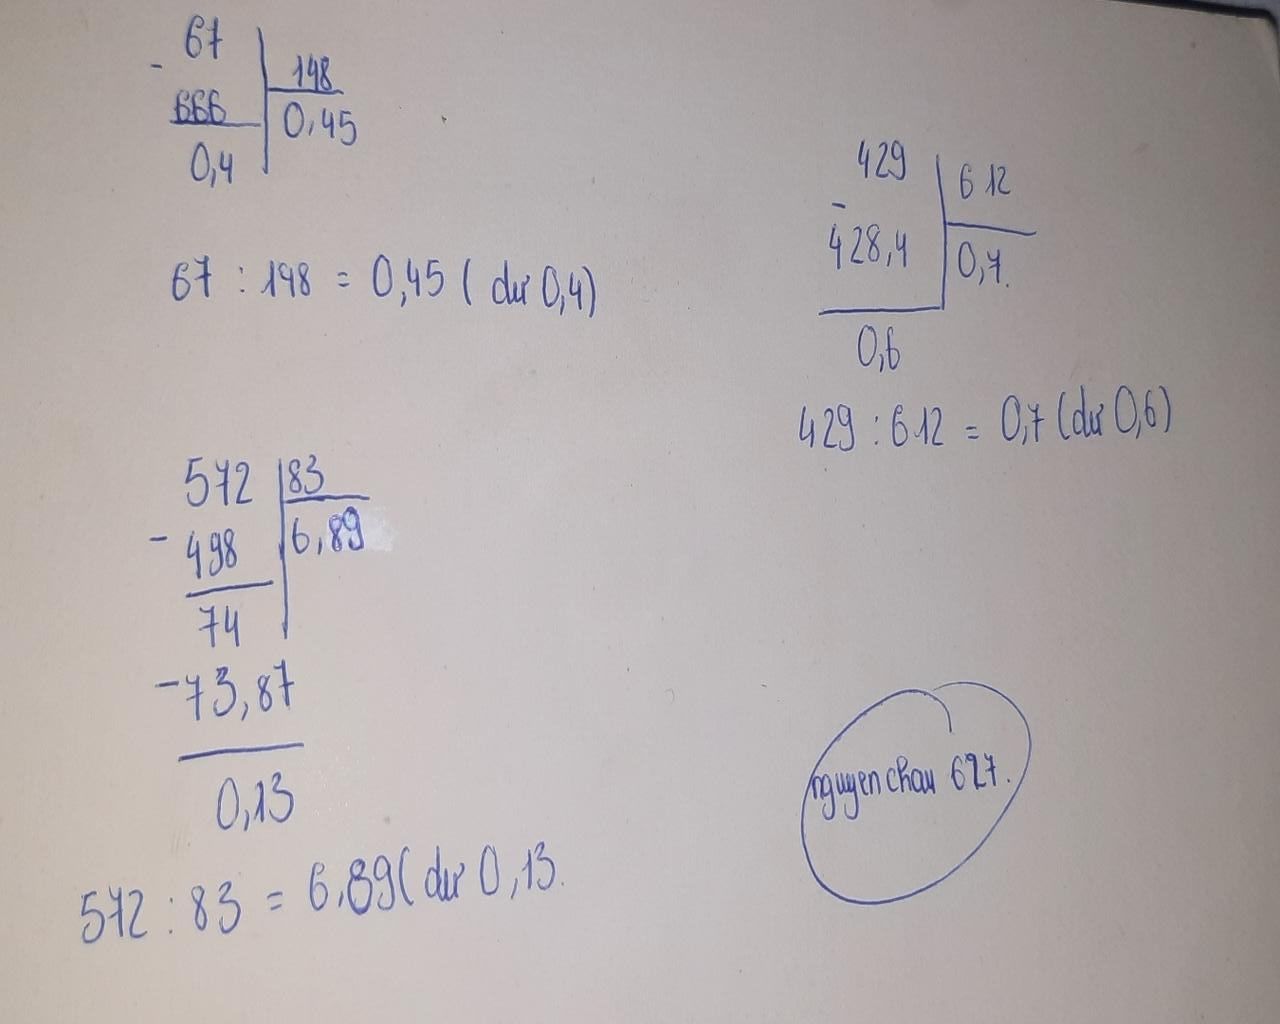 67
198
-
666
0,45
0,4
67 : 198 = 0,45 ( dư 0,4)
429
612
-
428,4
0,7.
0,6
429 : 612 = 0,7 (dư 0,6)
572
83
-
498
6,89
74
-73,87
0,13
572 : 83 = 6,89( dư 0,13.
nguyenchau 627.